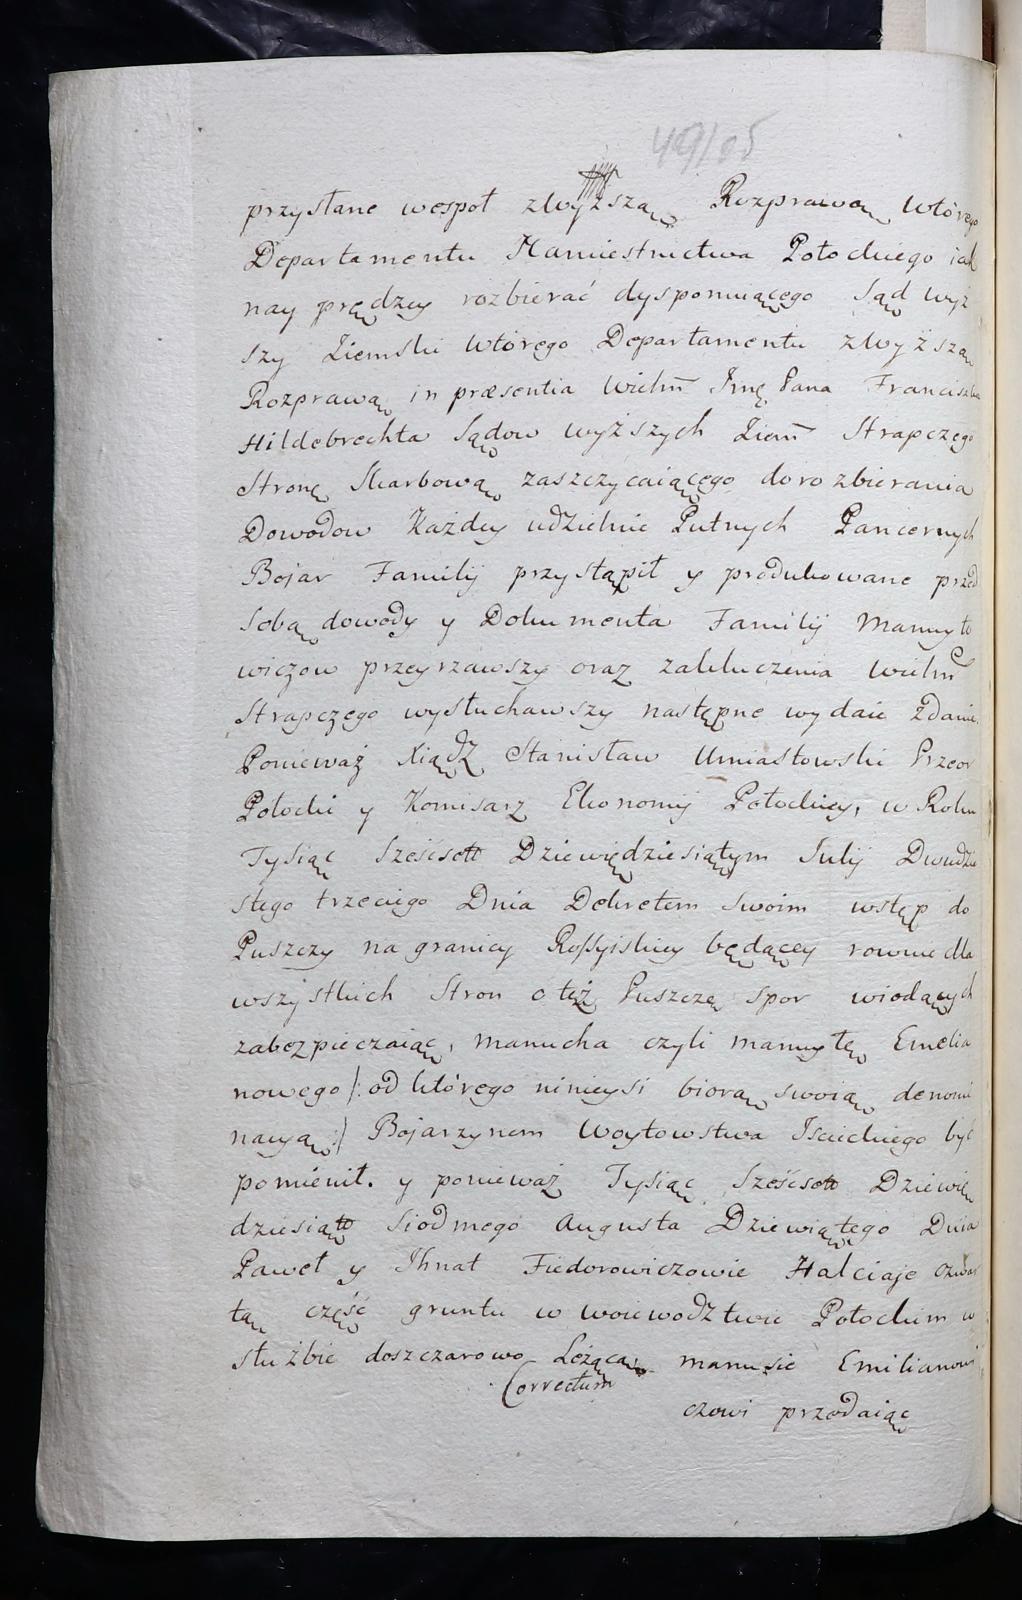 49/05
przysłane wespoł zwyższą Rozprawą wtórego
Departamentu Namiestnictwa Połockiego iak
nay prędzey rozbierać dysponuiącego Sąd wyż
szy Ziemski wtórego Departamentu zwyższą
Rozprawą in præsentia Wielm̃ Jmę Pana Franciszka
Hildebrechta Sądow wyższych Ziem̃ Strapczego
Stronę Skarbową zaszczycaiącego do rozbierania
Dowodow Każdey udzielnie Putnych Pancernych
Bojar Familij przystąpił y produkowane przed
Sobą dowody y Dokumenta Familij Mamyto
wiczow przeyrzawszy oraz zakluczenia Wielm̃
Strapczego wysłuchawszy następne wydaie Zdanie
Ponieważ Xiądz Stanisław Umiastowski Przeor
Połocki y Komisarz Ekonomij Połockiey, w Roku
Tysiąc Sześćsett Dziewiędziesiątym Julij Dwudzie
stego trzeciego Dnia Dekretem Swoim wstęp do
Puszczy na granicy Rossyiskiey będącey rownie dla
wszystkich Stron o też Puszczę spor wiodących
zabezpieczaiąc, manucha czyli mamytę Emelia
nowego /: od którego ninieysi biorą swoią denomi
nacyą :/ Bojarzynem Woytowstwa Iscickiego być
pomienił. y ponieważ Tysiąc Sześćsett Dziewię
dziesiątt Siodmego Augusta Dziewiątego Dnia
Paweł y Ihnat Fiedorowiczowie Halciaje czwar
tą część gruntu w woiewodztwie Połockim w
służbie doszczarowo Leżącą manusie Emilianowi
Correctum
czowi przedaiąc